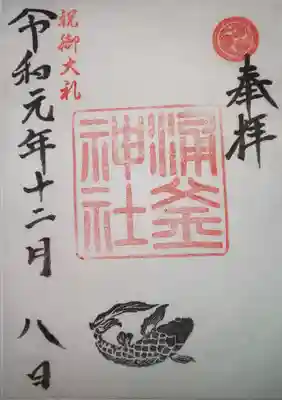 奉拝
涌釜
神社
祝御大礼
令和元年十二月八日